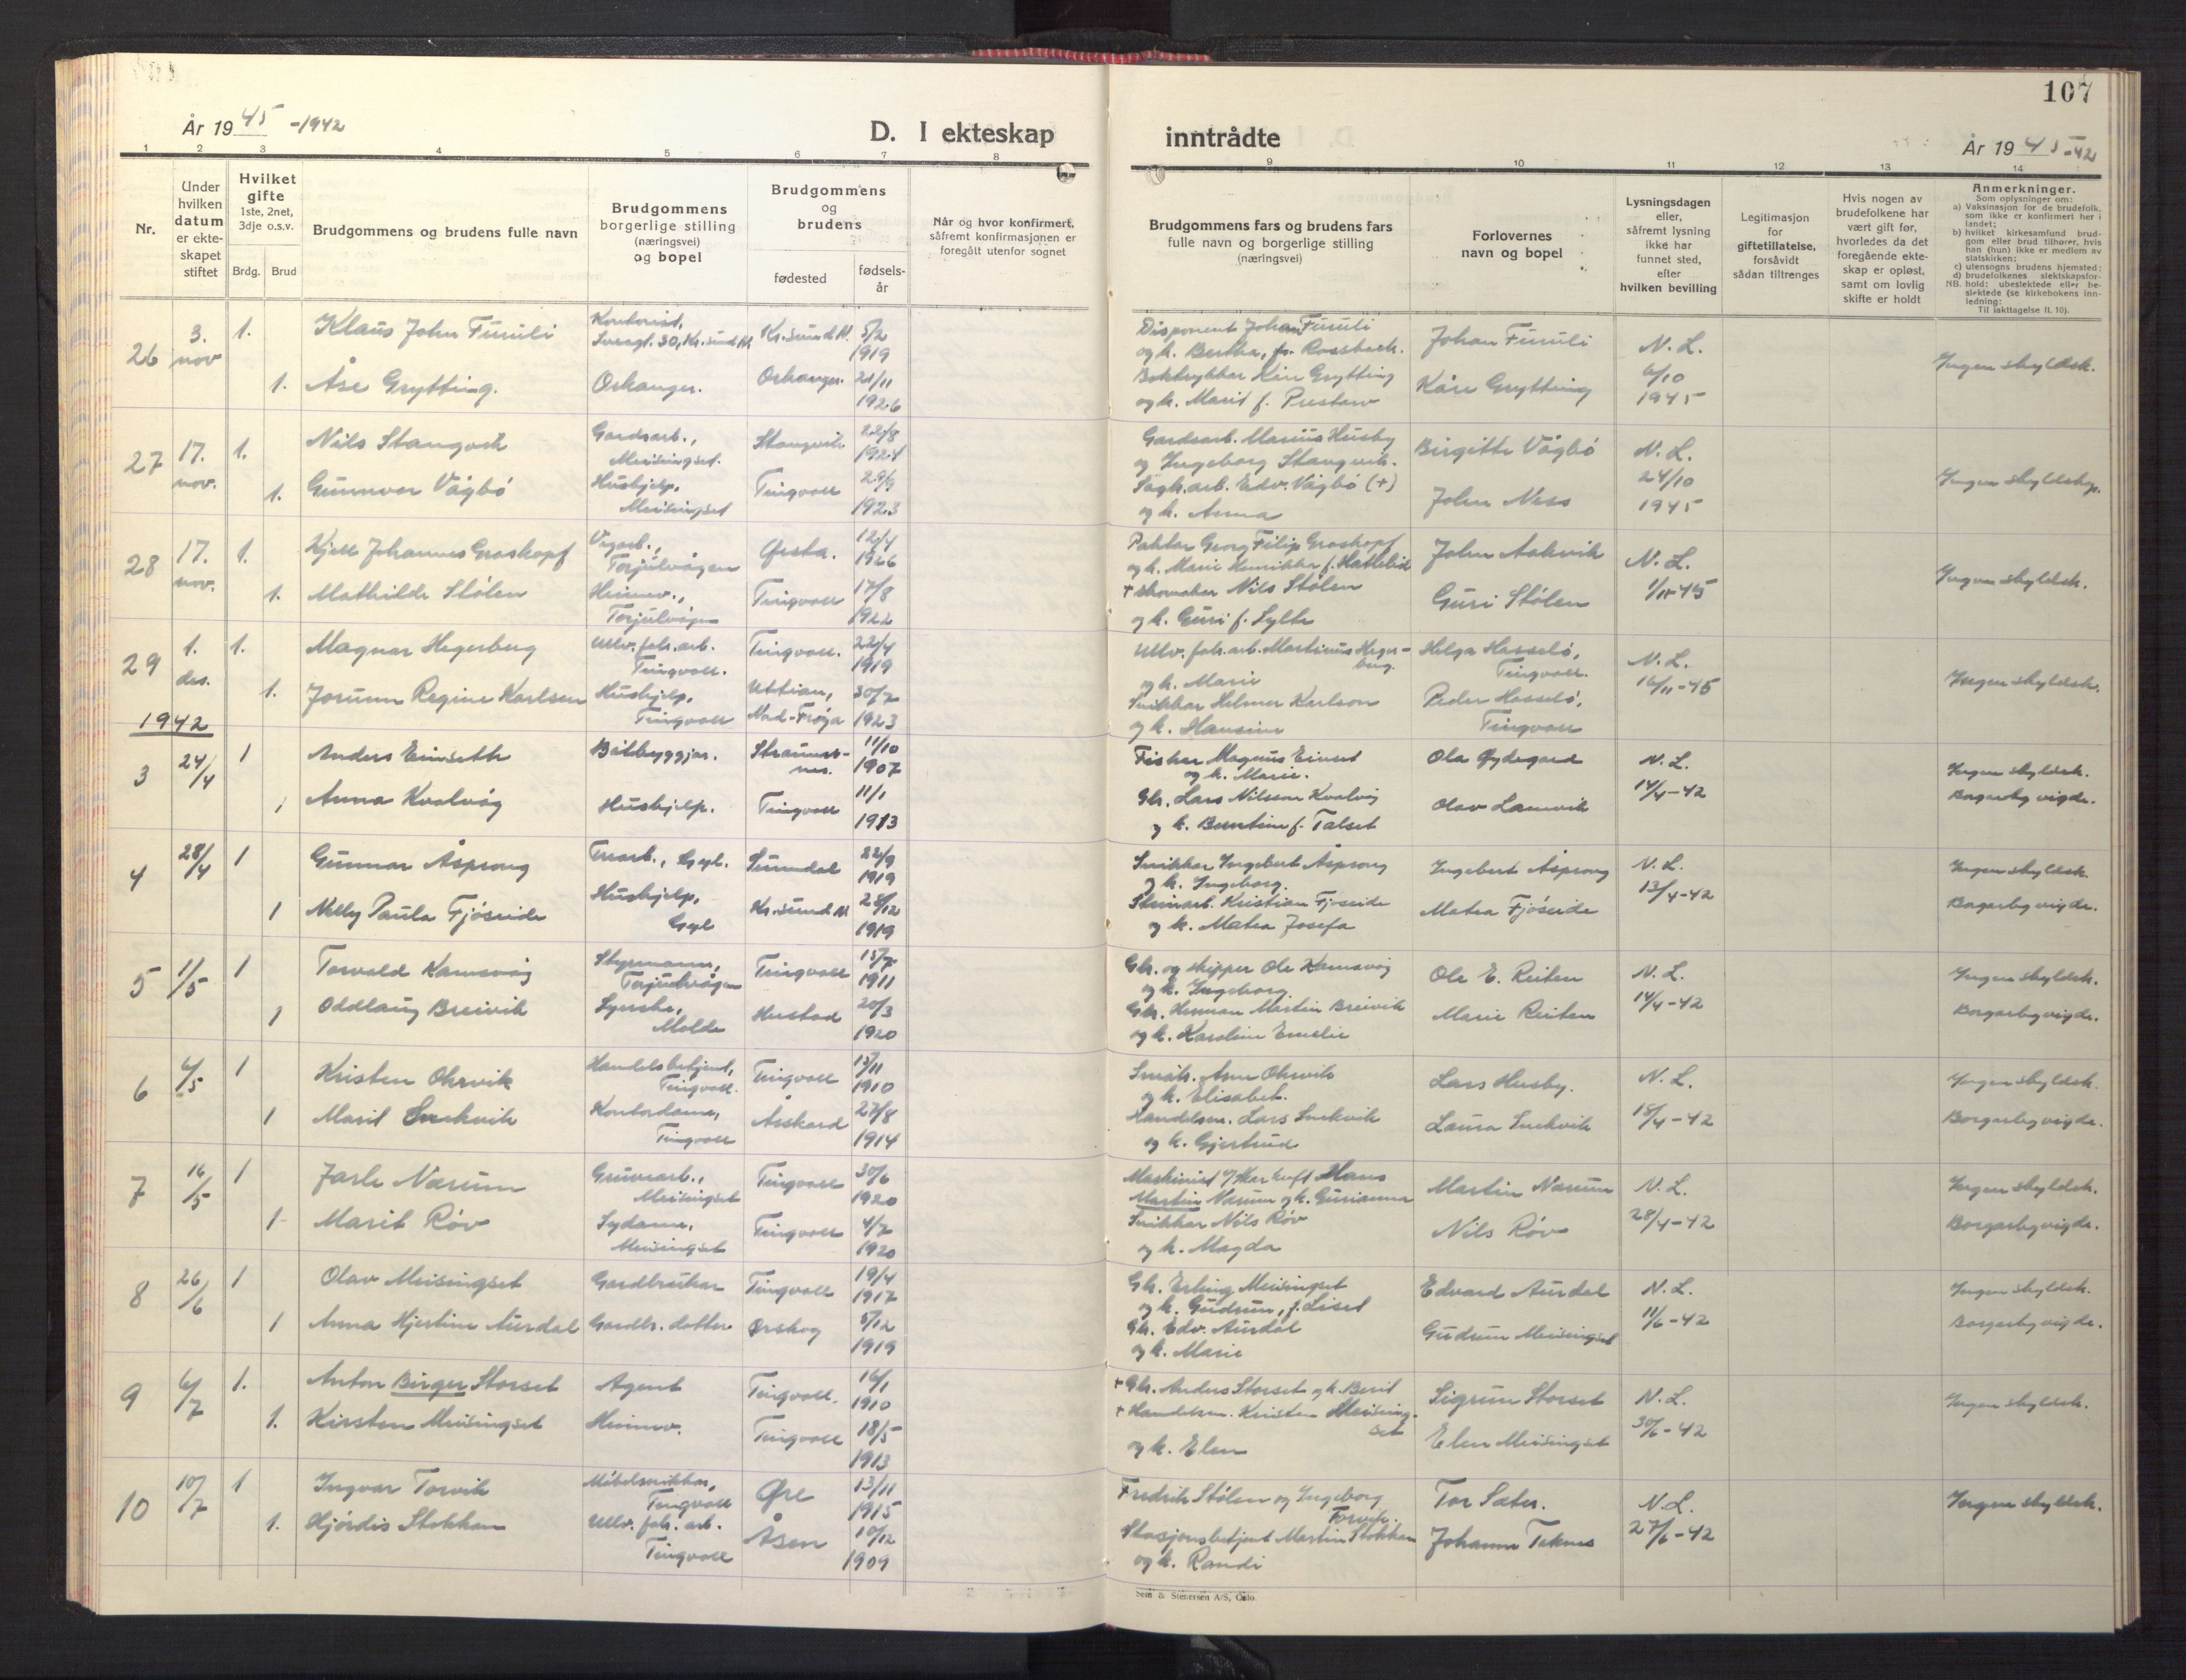 År 1945 -1942
D. I ekteskap
1 2 3 4 5 6 7 8
Nr.
Under hvilken datum er ekteskapet stiftet
Hvilket gifte
1ste, 2net, 3dje o.s.v.
Brdg. Brud
Brudgommens og brudens fulle navn
Brudgommens borgerlige stilling (næringsvei) og bopel
Brudgommens og brudens
fødested
fødsels-år
Når og hvor konfirmert, såfremt konfirmasjonen er foregått utenfor sognet
26 3. nov 1. Klaus John Furuli Kontorist, 30, Kr.sund N. Kr.sund N. 5/2 1919
1. Åse Grytting. Orkanger. Orkanger. 21/11 1926
27 17. nov. 1. Nils Stangvik Gardsarb., Meisingset. Stangvik 22/8 1921
1. Gunnvor Vågbö Hushjelp, Meisingset Tingvoll 29/9 1923
28 17. nov. 1. Kjell Johannes Groskopf Vegarb., Torjulvågen Ørsta. 12/4
1. Mathilde Stölen Heimev., Torjulvågen Tingvoll 17/8 1922
29 1. des. 1. Magnar Hegerberg Ullv. fab. arb. Tingvoll. Tingvoll. 22/4 1919
1. Jorunn Regine Karlsen Hushjelp, Tingvoll Uttian, Nord-Frøya 30/7 1923
1942
3 24/4 1 Anders Einseth Båtbyggjar. Straumsnes. 11/10 1907
1 Anna Kvalvåg Hushjelp. Tingvoll 11/1 1913
4 28/4 1 Gunnar Åsprong Gyl. Sunndal 22/9 1919
1 Nelly Paula Fjöseide Hushjelp, Gyl Kr.sund N 28/12 1919
5 1/5 1 Torvald Kamsvåg Styrmann, Torjulvågen Tingvoll 15/7 1911
1 Oddlaug Breivik Syerske, Molde Hustad 20/3 1920
6 6/5 1 Kristen Ohrvik Handelsbetjent, Tingvoll. Tingvoll 15/11 1910
1 Marit Snekvik Kontordame, Tingvoll Åsskard 27/8 1914
7 16/5 1 Jarle Nærum Gruvearb., Meisingset Tingvoll 30/6 1920
1 Marit Röv Sydame, Meisingset Tingvoll 4/7 1920
8 26/6 1 Olav Meisingset Gardbrukar Tingvoll 19/4 1917
1 Anna Hjertine Aurdal Gardbr. dotter Ørskog 5/12 1919
9 6/7 1. Anton Birger Storset Agent Tingvoll. 16/1 1910
1. Kirsten Meisingset Heimev. Tingvoll 18/5 1913
10 10/7 1 Ingvar Torvik Möbelsnikkar, Tingvoll Øre 13/11 1915
1. Hjördis Stokkan Ullv. fab. arb. Tingvoll Åsen 10/12 1909
107
inntrådte
År 1945 -42
9 10 11 12 13 14
Brudgommens fars og brudens fars fulle navn og borgerlige stilling (næringsvei)
Forlovernes navn og bopel
Lysningsdagen eller, såfremt lysning ikke har funnet sted, efter hvilken bevilling
Legitimasjon for giftetillatelse, forsåvidt sådan tiltrenges
Hvis nogen av brudefolkene har vært gift før, hvorledes da det foregående ekteskap er opløst, samt om lovlig skifte er holdt
Anmerkninger.
Som oplysninger om:
a) Vaksinasjon for de brudefolk, som ikke er konfirmert her i landet;
b) hvilket kirkesamfund brudgom eller brud tilhører, hvis han (hun) ikke er medlem av statskirken;
c) utensogns brudens hjemsted;
d) brudefolkenes slektskapsforhold: ubeslektede eller beslektede (se kirkebokens innledning:
NB.
Til iakttagelse II. 10).
Disponent Johan Furuli Johan Furuli N. L.
og k. Bertha, f. Rossbach. 6/10 Ingen skyldsk.
Boktrykkar Kåre Grytting Kåre Grytting 1945
og k. Marit f.
Gardsarb. Marius Husby Birgitte Vågbö N. L.
og Ingeborg Stangvik. 24/10 Ingen skyldskap.
Sagbr.arb. Edv. Vågbö (+) John Ness 1945
og k. Anna
Georg Filip Groskopf John Aakvik N. L.
og k. Marie f. 1/11-45 Ingen skyldsk.
+ skomaker Nils Stölen Guri Stölen
og k. Guri f. Sylte
Ullv. fab. arb. Martinus Hegerberg. Helga Hasselö, Tingvoll. N. L.
og k. Marie 16/11-45 Ingen skyldsk.
Snikkar Helmer Karlson Peder Hasselö, Tingvoll
og k. Hansine
Fiskar Magnus Einset Ola Øydegard N. L.
og k. Marie. 14/4-42 Ingen skyldsk.
Gbr. Lars Nilsson Kvalvåg Olav Lausvik Borgarleg vigde.
og k. Berntine f. Talset
Snikkar Ingebert Åsprong Ingebert Åsprong N. L. Ingen skyldsk.
og k. Ingeborg. 13/4-42
Steinarb. Kristian Fjöseide Matea Fjöseide Borgarleg vigde.
og k. Matea Josefa
Gbr. og skipper Ole Kamsvåg Ole E. Reiten N. L. Ingen skyldsk.
og k. Ingeborg 14/4-42
Gbr. Herman Martin Breivik Marie Reiten Borgarleg vigde.
og k. Karoline Emelie
Småbr. Arne Ohrvik Lars Husby. N. L. Ingen skyldsk.
og k. Elisabet. 18/4-42
Handelsm. Lars Snekvik Laura Snekvik Borgarleg vigde.
og k. Gjertrud
Maskinist Hans Martin Nærum og k. Gurianna Martin Nærum N. L. Ingen skyldsk.
Snikkar Nils Röv Nils Röv 28/4-42 Borgarleg vigde.
og k. Magda
Gbr. Erling Meisingset Edvard Aurdal N. L. Ingen skyldsk.
og k. Gudrun, f. Liset 11/6-42
Gbr. Edv. Aurdal Gudrun Meisingset Borgarleg vigde.
og k. Marie
+ Gbr. Anders Storset og k. Berit Sigrun Storset N. L. Ingen skyldsk.
+ Handelsm. Kristen Meisingset 30/6-42
og k. Elen Elen Meisingset
Fredrik Stölen og Ingeborg Torvik. Tor Sæter. N.L. Ingen skyldsk.
Stasjonsbetjent Martin Stokkan Johanne Teknes 27/6-42
og k. Randi
Sem & Stenersen A/S, Oslo.